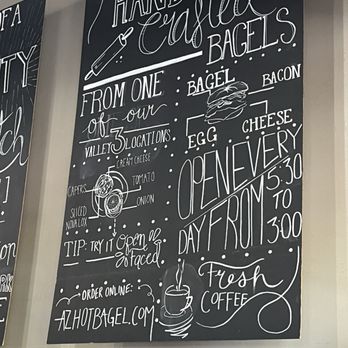 OF A
HAND
Crafted
BAGELS
FROM ONE
of our
VALLEY 3 LOCATIONS
CREAM CHEESE
CAPERS
TOMATO
SLICED
NOVA LOX
ONION
TIP: TRY IT Open
faced
ORDER ONLINE:
AZHOTBAGEL.COM
BAGEL
BACON
EGG
CHEESE
OPEN EVERY
DAY FROM
5:30
TO
3:00
Fresh
COFFEE